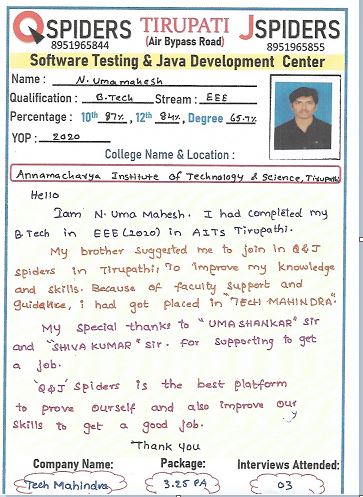 QSPIDERS TIRUPATI JSPIDERS
8951965844 (Air Bypass Road) 8951965855
Software Testing & Java Development Center
Name : N. Umamahesh
Qualification : B.Tech Stream : EEE
Percentage : 10th 87%, 12th 84%, Degree 65.7%
YOP : 2020
College Name & Location :
Annamacharya Institute of Technology & Science, Tirupathi
Hello
Iam N. Uma Mahesh. I had completed my
B.Tech in EEE (2020) in AITS Tirupathi.
My brother suggested me to join in Q&J
spiders in Tirupathi. To improve my knowledge
and skills. Because of faculty support and
guidance, i had got placed in "TECH MAHINDRA".
My special thanks to "UMA SHANKAR" sir
and "SHIVA KUMAR" sir. for supporting to get
a job.
'Q&J' Spiders is the best platform
to prove ourself and also improve our
skills to get a good job.
Thank you
Company Name: Package: Interviews Attended:
Tech Mahindra 3.25 PA 03